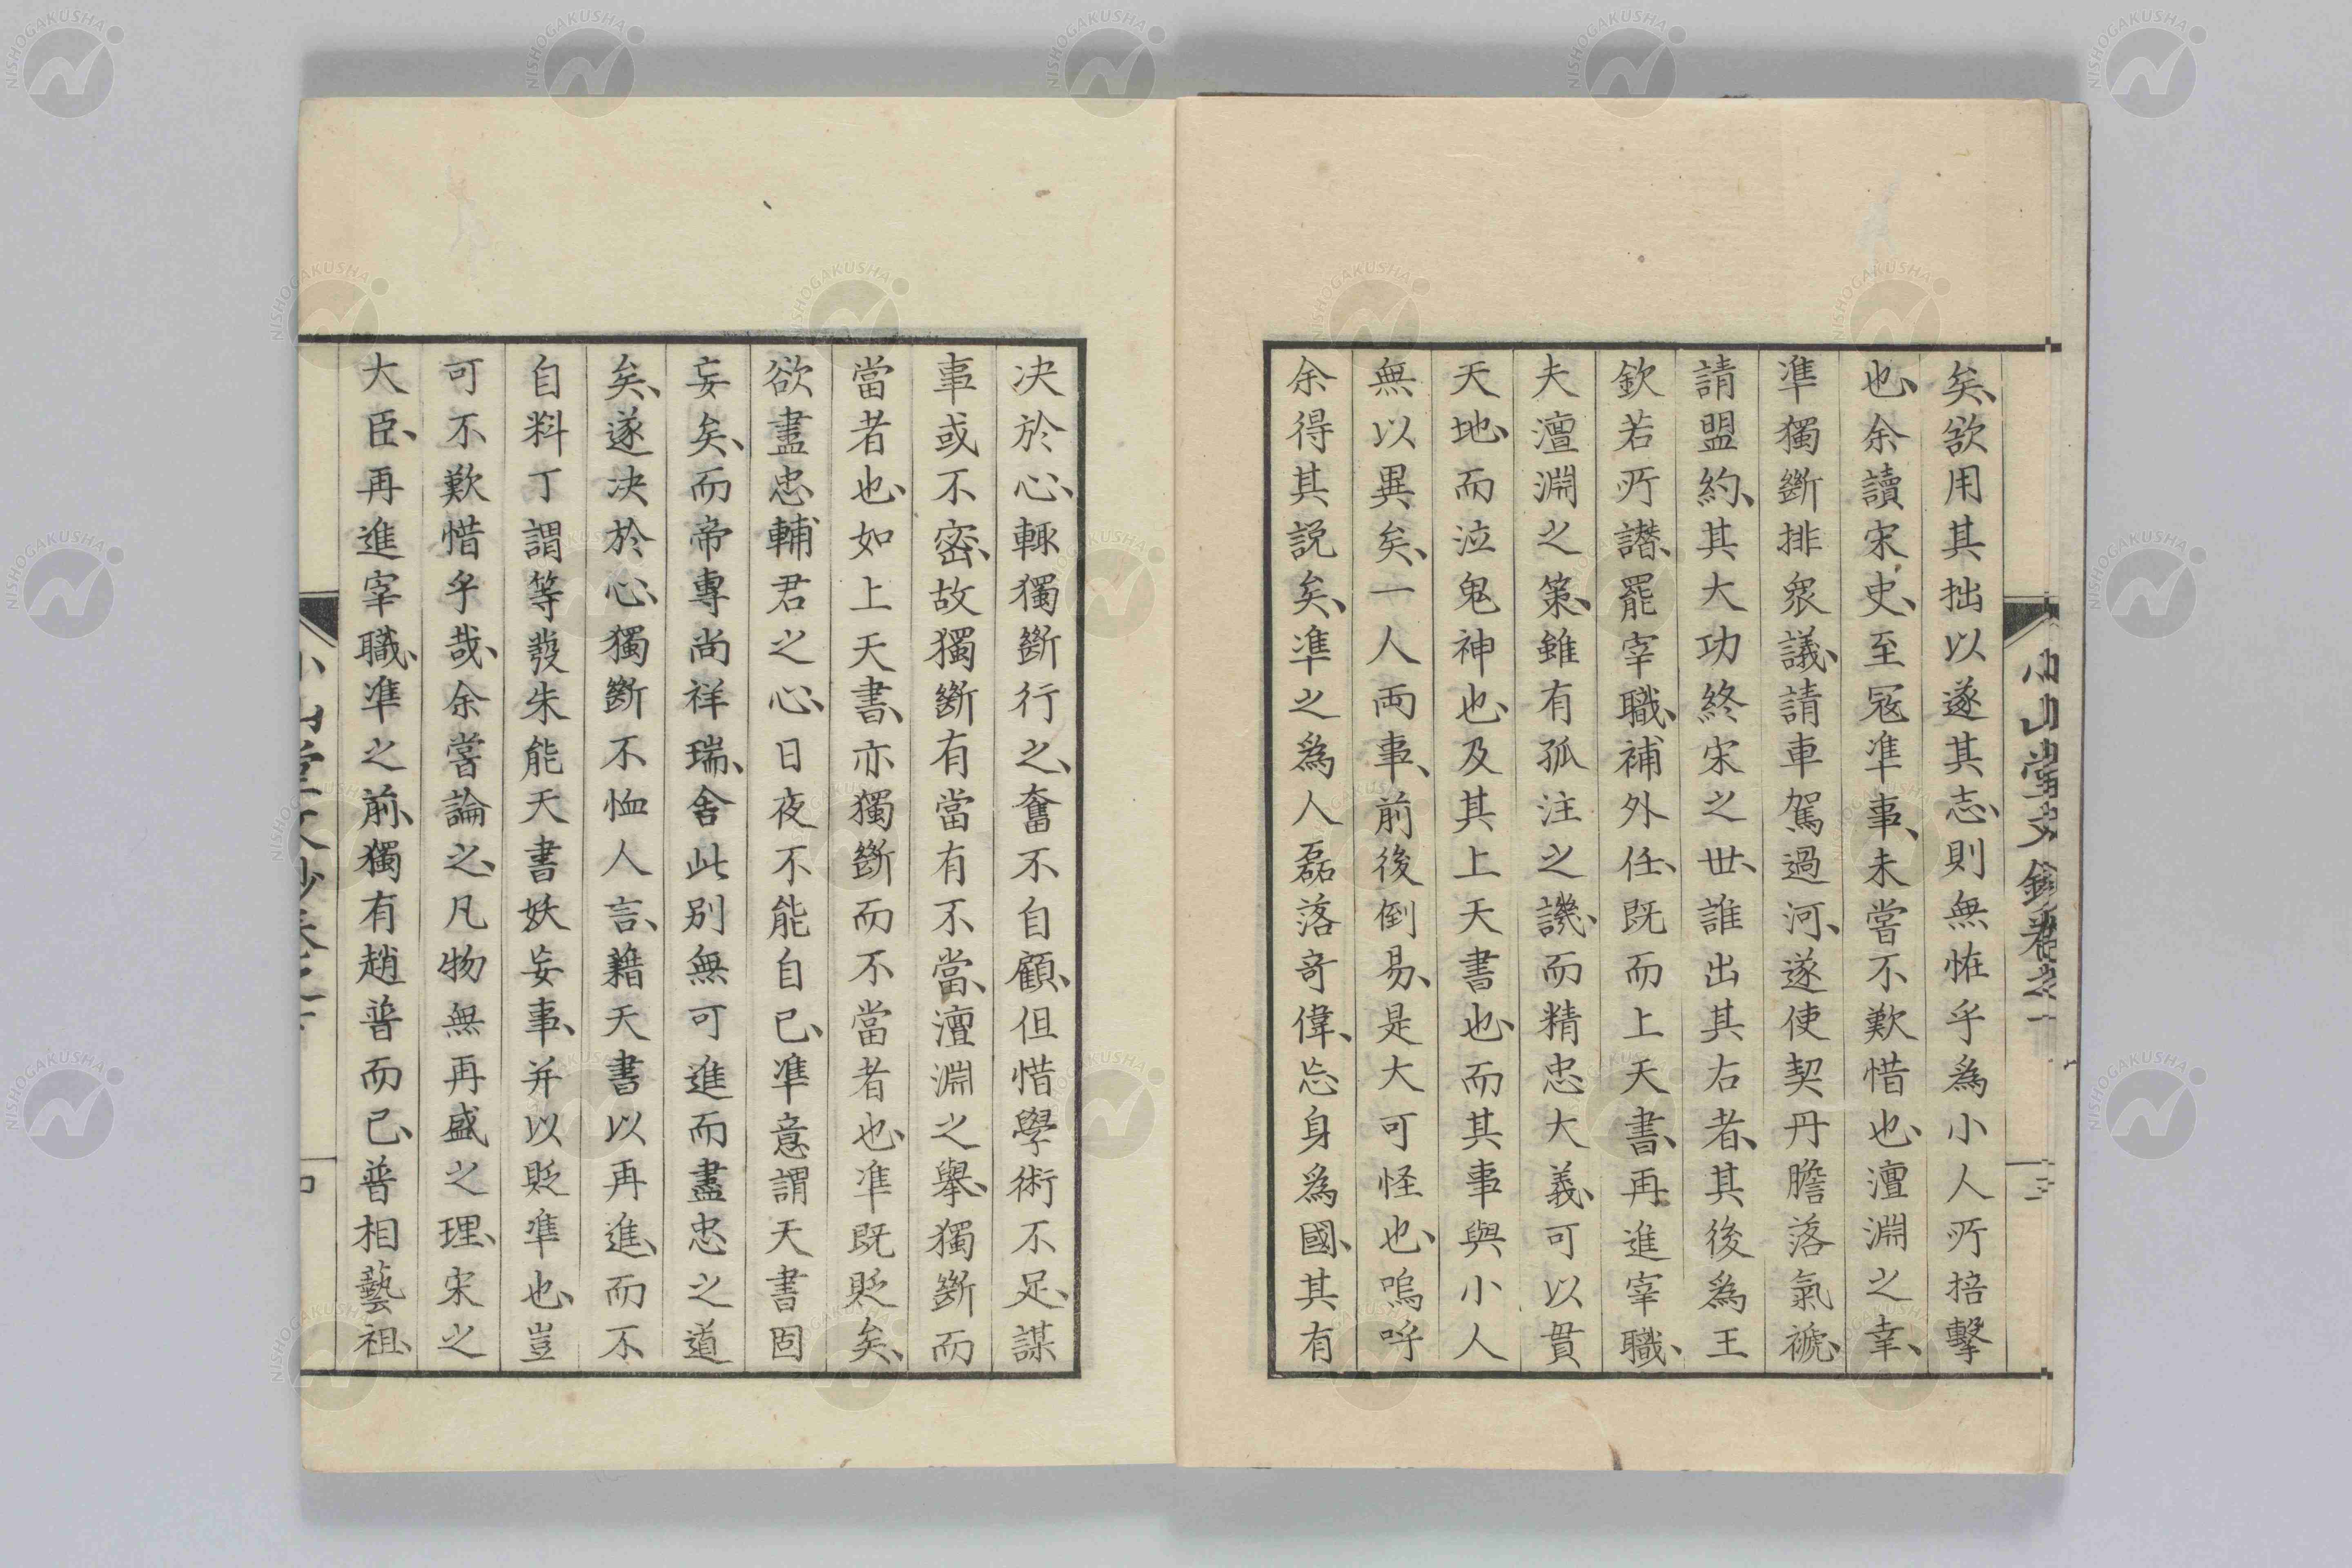 小山堂文鈔卷之一
三
矣、欲用其拙以遂其志、則無恠乎爲小人所掊擊
也、余讀宋史、至寇準事、未嘗不歎惜也、澶淵之幸、
準獨斷排衆議、請車駕過河、遂使契丹膽落氣褫、
請盟約、其大功終宋之世、誰出其右者、其後爲王
欽若所譛、罷宰職、補外任、既而上天書、再進宰職、
夫澶淵之策、雖有孤注之譏、而精忠大義、可以貫
天地、而泣鬼神也、及其上天書也、而其事與小人
無以異矣、一人両事、前後倒易、是大可怪也、嗚呼
余得其説矣、準之爲人磊落奇偉、忘身爲國、其有
决於心、輙獨斷行之、奮不自顧、但惜學術不足、謀
事或不密、故獨斷有當有不當、澶淵之舉、獨斷而
當者也、如上天書、亦獨斷而不當者也、準既貶矣、
欲盡忠輔君之心、日夜不能自已、準意謂天書固
妄矣、而帝專尚祥瑞、舍此別無可進而盡忠之道
矣、遂决於心、獨斷不恤人言、藉天書以再進、而不
自料丁謂等發朱能天書妖妄事、并以貶準也、豈
可不歎惜乎哉、余嘗論之、凡物無再盛之理、宋之
大臣、再進宰職、準之前、獨有趙普而已、普相藝祖、